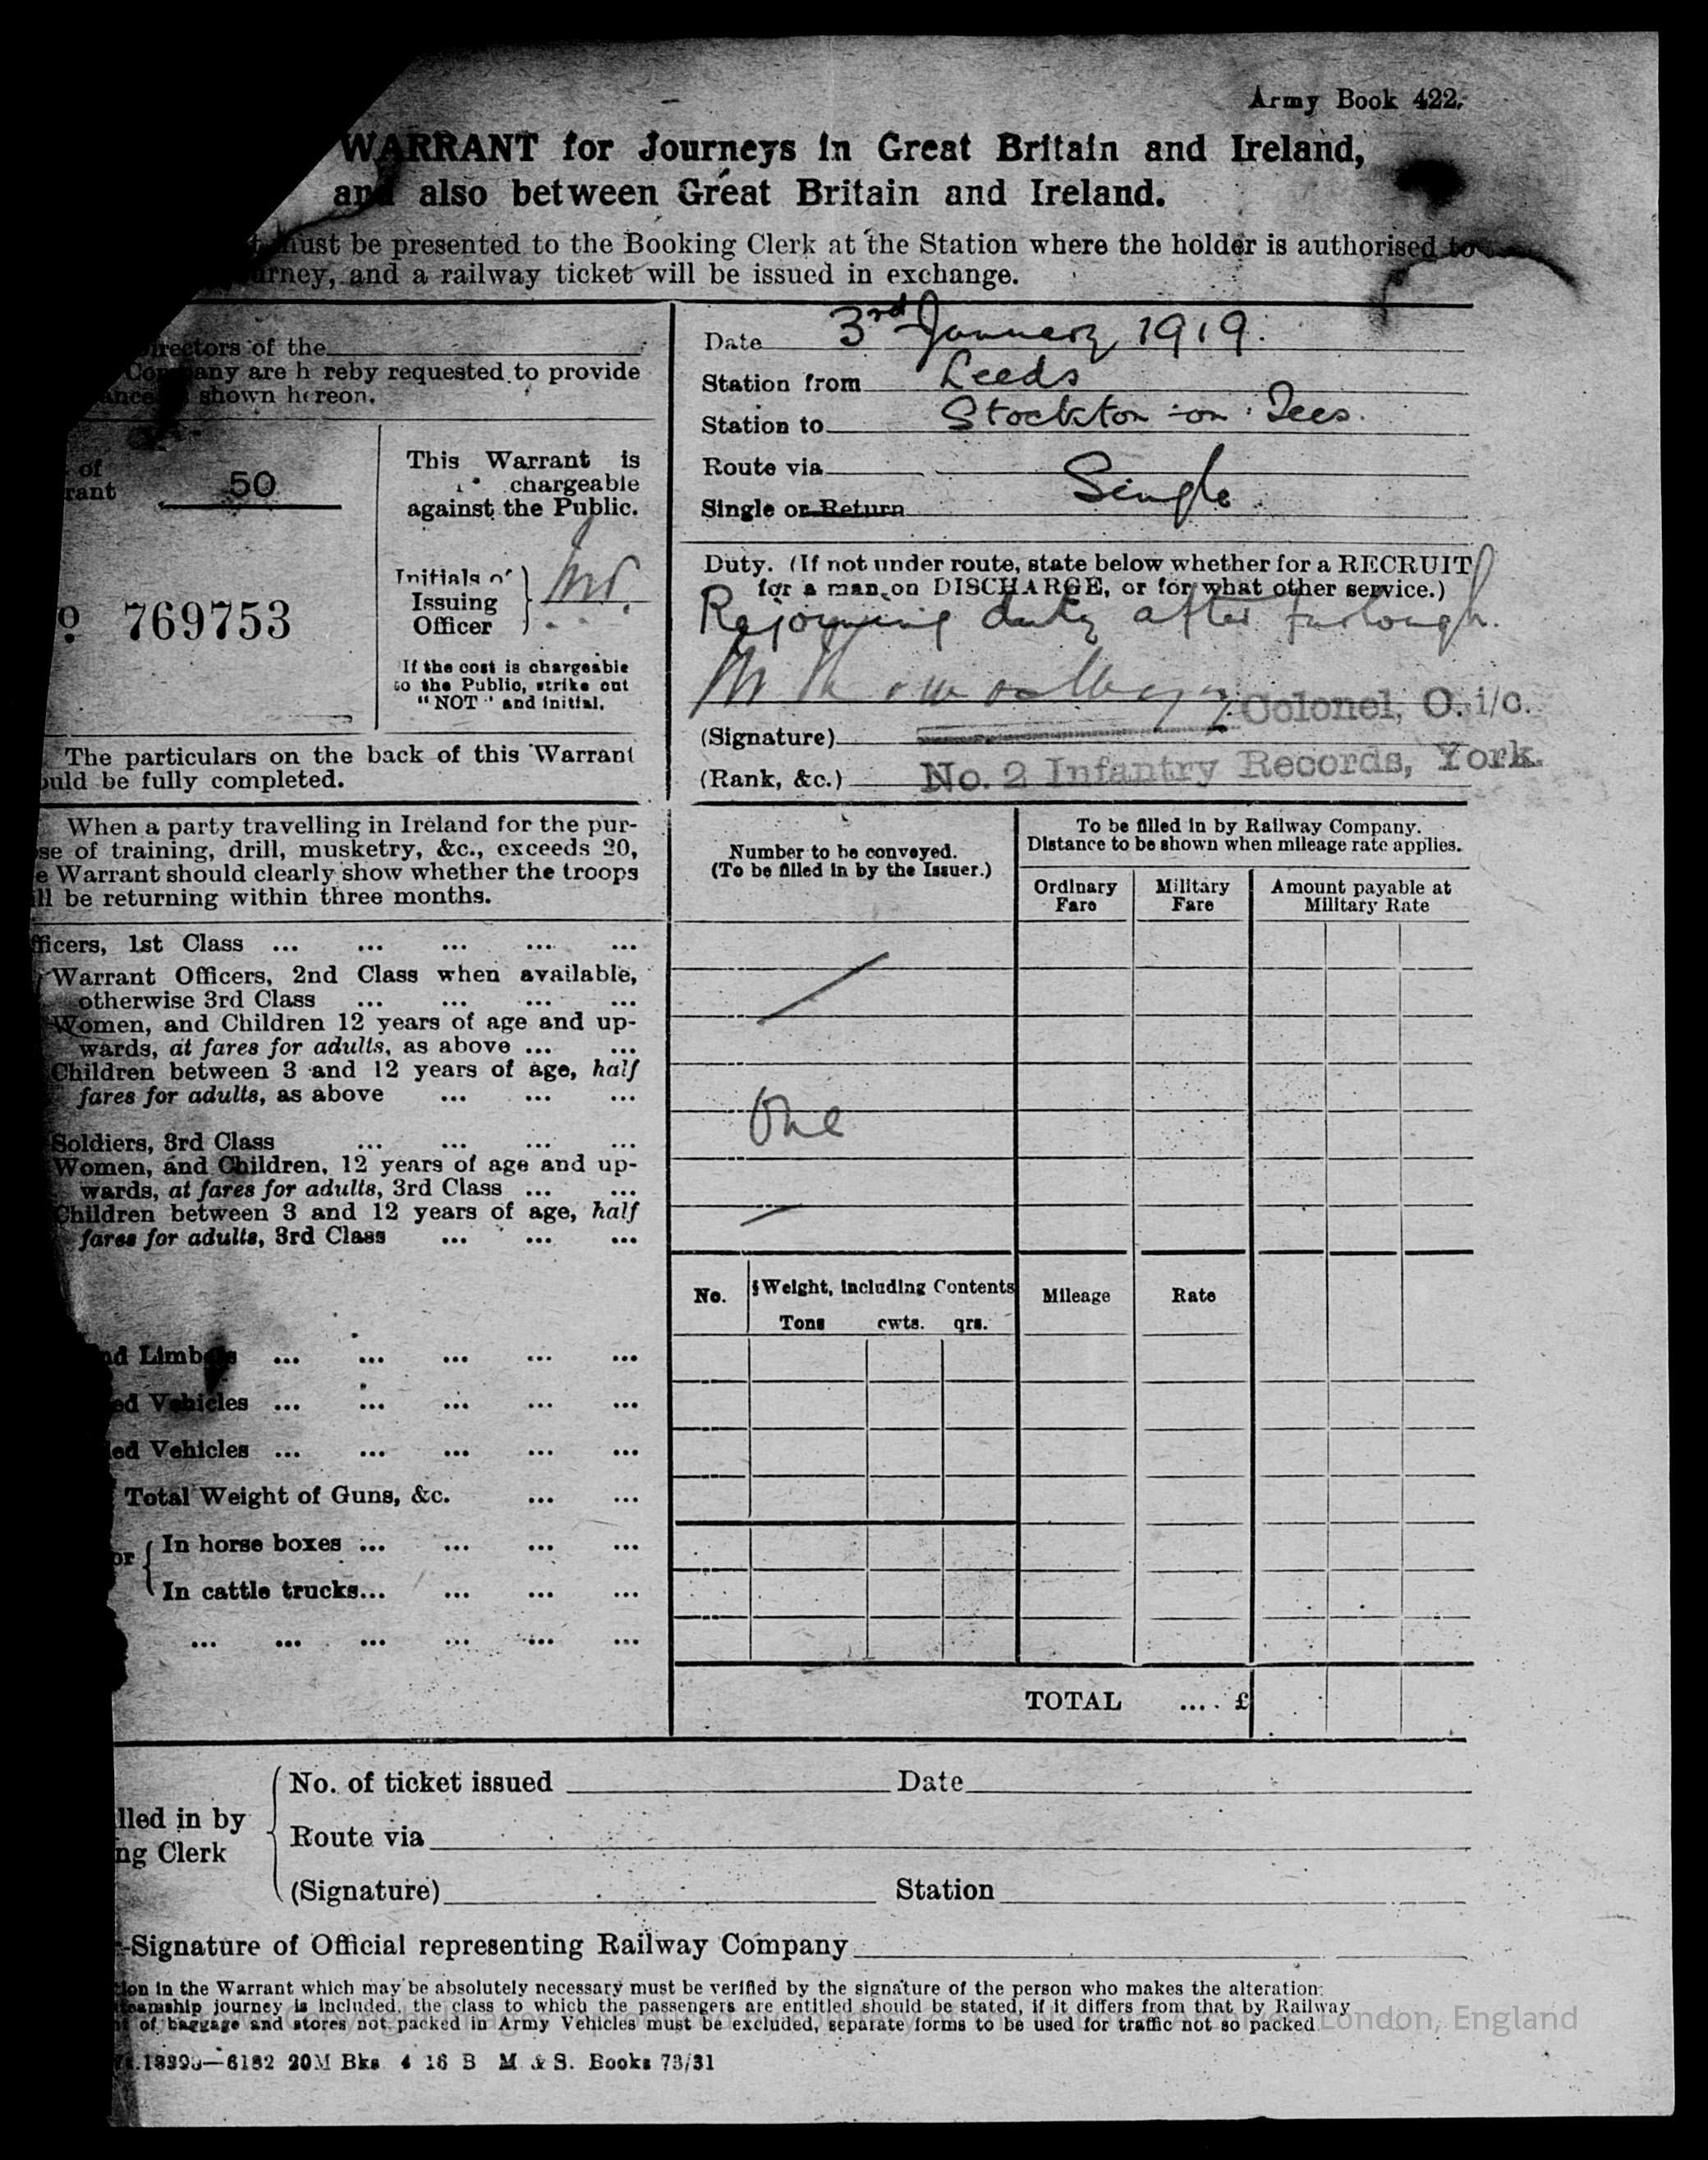 Army Book 422.
WARRANT for Journeys in Great Britain and Ireland,
and also between Great Britain and Ireland.
must be presented to the Booking Clerk at the Station where the holder is authorised to
rney, and a railway ticket will be issued in exchange.
irectors of the
Company are h reby requested to provide
ance shown hereon.
of
rant 50
This Warrant is
chargeable
against the Public.
Initials of
Issuing
Officer
o 769753
If the cost is chargeable
to the Public, strike out
"NOT" and initial.
The particulars on the back of this Warrant
ould be fully completed.
Date 3rd January 1919.
Station from Leeds
Station to Stockton-on-Tees.
Route via
Single or Return Single
Duty. (If not under route, state below whether for a RECRUIT
for a man on DISCHARGE, or for what other service.)
Rejoining duty after furlough.
(Signature) Colonel, O. i/c.
(Rank, &c.) No. 2 Infantry Records, York.
When a party travelling in Ireland for the pur-
se of training, drill, musketry, &c., exceeds 20,
e Warrant should clearly show whether the troops
ll be returning within three months.
Number to be conveyed.
(To be filled in by the Issuer.)
To be filled in by Railway Company.
Distance to be shown when mileage rate applies.
Ordinary Fare
Military Fare
Amount payable at Military Rate
fficers, 1st Class ... ... ... ... ...
Warrant Officers, 2nd Class when available,
otherwise 3rd Class ... ... ... ...
Women, and Children 12 years of age and up-
wards, at fares for adults, as above ... ...
Children between 3 and 12 years of age, half
fares for adults, as above ... ... ...
Soldiers, 3rd Class ... ... ... ... One
Women, and Children, 12 years of age and up-
wards, at fares for adults, 3rd Class ... ...
Children between 3 and 12 years of age, half
fares for adults, 3rd Class ... ... ...
No. §Weight, including Contents Mileage Rate
Tons cwts. qrs.
nd Limbers ... ... ... ... ...
ed Vehicles ... ... ... ... ...
led Vehicles ... ... ... ... ...
Total Weight of Guns, &c. ... ...
or { In horse boxes ... ... ... ...
In cattle trucks... ... ... ...
... ... ... ... ... ...
TOTAL .... £
lled in by
ng Clerk
No. of ticket issued Date
Route via
(Signature) Station
Signature of Official representing Railway Company
tion in the Warrant which may be absolutely necessary must be verified by the signature of the person who makes the alteration.
teamship journey is included, the class to which the passengers are entitled should be stated, if it differs from that by Railway
of baggage and stores not packed in Army Vehicles must be excluded, separate forms to be used for traffic not so packed
London, England
6182 20M Bks 4 16 B M & S. Books 73/31